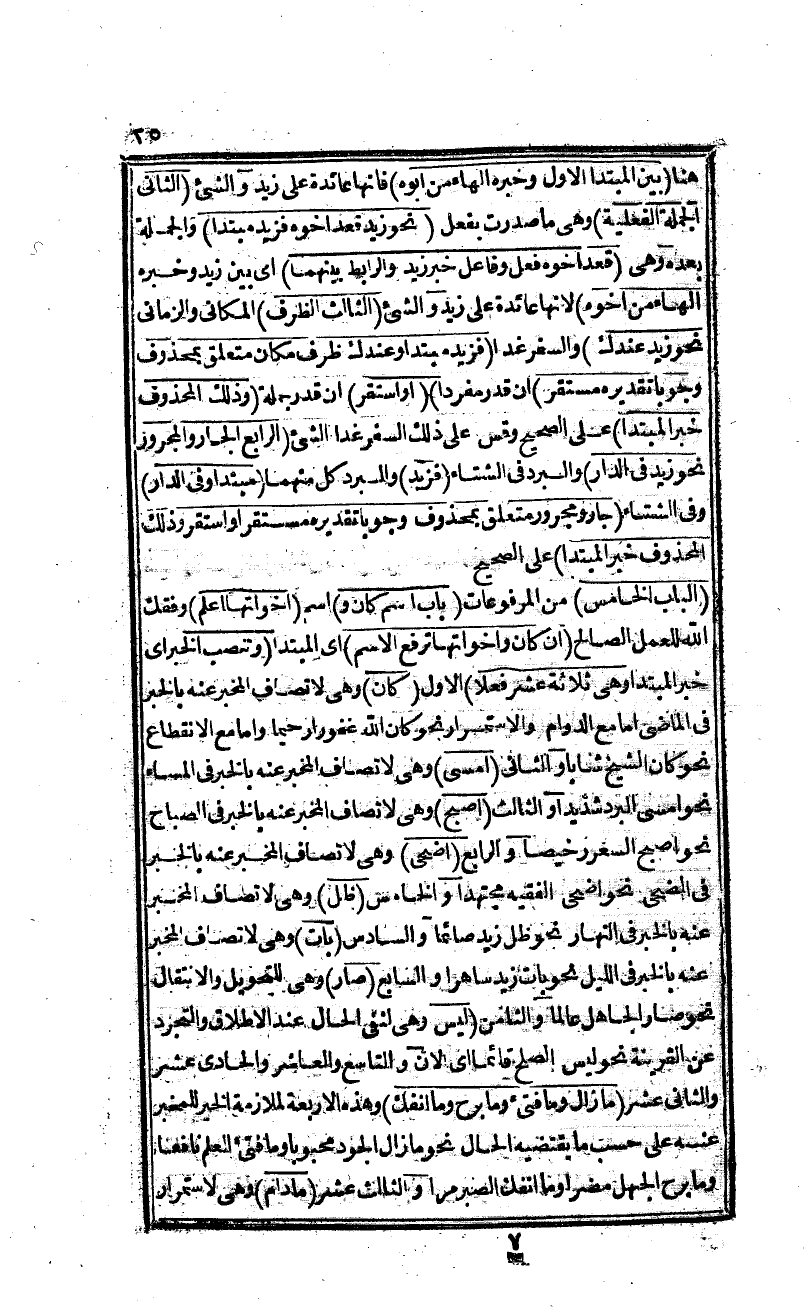 ٢٥
هنا (بين المبتدا الاول وخبره الهاء من ابوه) فانها عائدة على زيد و الشئ (الثانى
الجملة الفعلية) وهى ما صدرت بفعل (نحو زيد قعد اخوه فزيد مبتدا) والجملة
بعده وهى (قعد اخوه فعل وفاعل خبر زيد والرابط بينهما) اى بين زيد وخبره
الهاء من اخوه) لانها عائدة على زيد و الشئ (الثالث الظرف) المكانى والزمانى
نحو زيد عندك) والسفر غدا (فزيد مبتدا وعندك ظرف مكان متعلق بمحذوف
وجوبا تقديره مستقر) ان قدر مفردا) (او استقر) ان قدر جملة (وذلك المحذوف
خبر المبتدا) على الصحيح وقس على ذلك السفر غدا الشئ (الرابع الجار والمجرور
نحو زيد فى الدار) والبرد فى الشتاء (فزيد) والبرد كل منهما (مبتدا وفى الدار)
وفى الشتاء (جار ومجرور متعلق بمحذوف وجوبا تقديره مستقر او استقر وذلك
المحذوف خبر المبتدا) على الصحيح
(الباب الخامس) من المرفوعات (باب اسم كان و) اسم (اخواتها اعلم) وفقك
الله للعمل الصالح (ان كان واخواتها ترفع الاسم) اى المبتدا (وتنصب الخبر اى
خبر المبتدا وهى ثلاثة عشر فعلا) الاول (كان) وهى لاتصاف المخبر عنه بالخبر
فى الماضى اما مع الدوام والاستمرار نحو كان الله غفورا رحيما واما مع الانقطاع
نحو كان الشيخ شابا و الثانى (امسى) وهى لاتصاف المخبر عنه بالخبر فى المساء
نحو امسى البرد شديدا و الثالث (اصبح) وهى لاتصاف المخبر عنه بالخبر فى الصباح
نحو اصبح السعر رخيصا و الرابع (اضحى) وهى لاتصاف المخبر عنه بالخبر
فى الضحى نحو اضحى الفقيه مجتهدا و الخامس (ظل) وهى لاتصاف المخبر
عنه بالخبر فى النهار نحو ظل زيد صائما و السادس (بات) وهى لاتصاف المخبر
عنه بالخبر فى الليل نحو بات زيد ساهرا و السابع (صار) وهى للتحويل والانتقال
نحو صار الجاهل عالما والثامن (ليس وهى لنفى الحال عند الاطلاق والتجرد
عن القرينة نحو ليس الصلح قائما اى الان و التاسع والعاشر والحادى عشر
والثانى عشر (ما زال وما فتئ وما برح وما انفك) وهذه الاربعة لملازمة الخبر للمخبر
عنه على حسب ما يقتضيه الحال نحو ما زال الجود محبوبا وما فتئ العلم نافعا
وما برح الجهل مضرا وما انفك الصبر مرا و الثالث عشر (مادام) وهى لاستمرار
٧